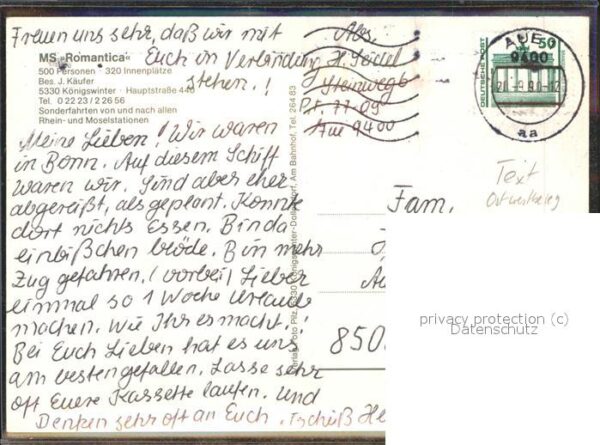 Freuen uns sehr, daß wir mit
Euch in Verbindung
stehen!
MS „Romantica“
500 Personen · 320 Innenplätze
Bes. J. Käufer
5330 Königswinter · Hauptstraße 440
Tel. 0 22 23 / 2 26 56
Sonderfahrten von und nach allen
Rhein- und Moselstationen
Abs.
H. Seidel
Steinweg 6
Aue 9400
Meine Lieben! Wir waren
in Bonn. Auf diesem Schiff
waren wir. Sind aber eher
abgereißt, als geplant. Konnte
dort nichts Essen. Bin da
einbißchen blöde. Bin mehr
Zug gefahren. (vorbei) Lieber
einmal so 1 Woche Urlaub
machen. Wie Ihr es macht.!
Bei Euch Lieben hat es uns
am besten gefallen. Lasse sehr
oft Euere Kassette laufen. Und
Denken sehr oft an Euch. Tschüß He
Am Bahnhof, Tel. 264 83
DEUTSCHE POST
50
AUE
9400
aa
Text
Ostwestbeleg
Fam.
850
privacy protection (c)
Datenschutz